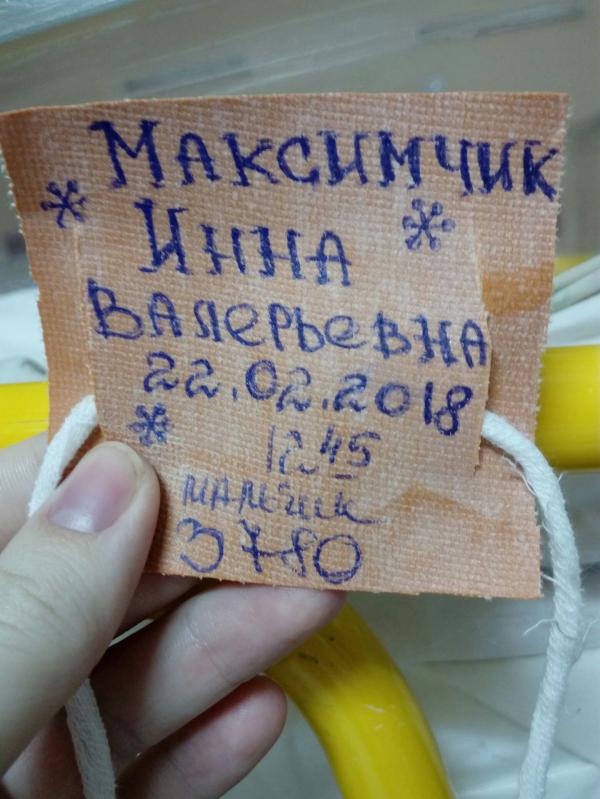 Максимчик
Инна
Валерьевна
22.02.2018
12.45
мальчик
3780